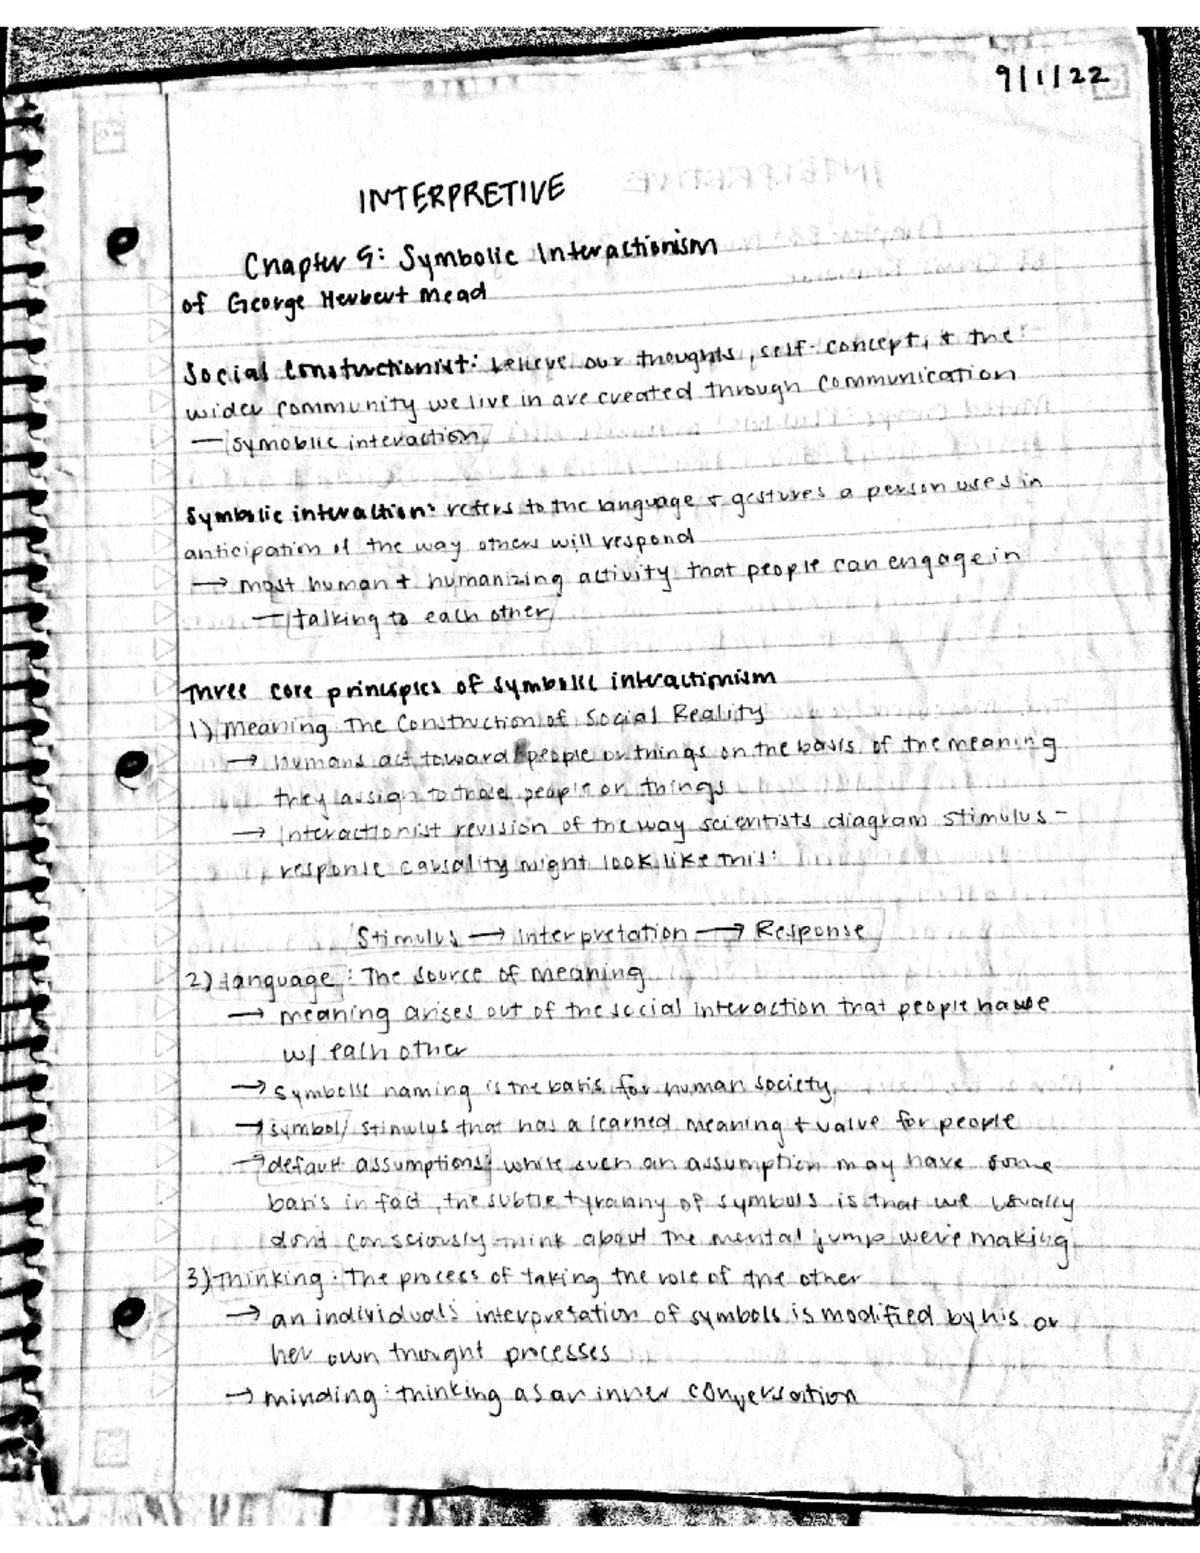 9/1/22
INTERPRETIVE
Chapter 5: Symbolic Interactionism
of George Herbert Mead
Social Constructionist: believe our thoughts, self-concept, & the
wider community we live in are created through communication
— symoblic interaction
Symbolic interaction: refers to the language & gestures a person uses in
anticipation of the way others will respond
→ most human & humanizing activity that people can engage in
— talking to each other
Three core principles of symbolic interactionism
1) Meaning: The Construction of Social Reality
→ Humans act toward people or things on the basis of the meaning
they assign to those people or things
→ Interactionist revision of the way scientists diagram stimulus-
response causality might look like this:
Stimulus → Interpretation → Response
2) Language: The source of meaning
→ meaning arises out of the social interaction that people have
w/ each other
→ symbolic naming is the basis for human society
→ symbol/ stimulus that has a learned meaning & value for people
→ default assumptions: while such an assumption may have some
basis in fact, the subtle tyranny of symbols is that we usually
don't consciously think about the mental jump we're making
3) Thinking: The process of taking the role of the other
→ an individual's interpretation of symbols is modified by his or
her own thought processes
→ minding: thinking as an inner conversation